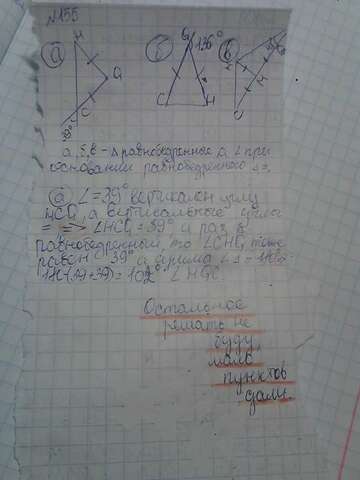 №155
а б в
H G 136° 
G
39° C
C H
C M
а, б, в - Δ равнобедренные а ∠ при
основании равнобедренного Δ =,
а ∠=39° вертикален углу
HCG, а вертикальные углы
= => ∠HCG=39° и раз Δ
равнобедренный, то ∠CHG тоже
равен 39° и сумма ∠ Δ = 180°
180-(39+39)=102° ∠HGC.
Остальное
решать не
буду,
мало
пунктов
дали.